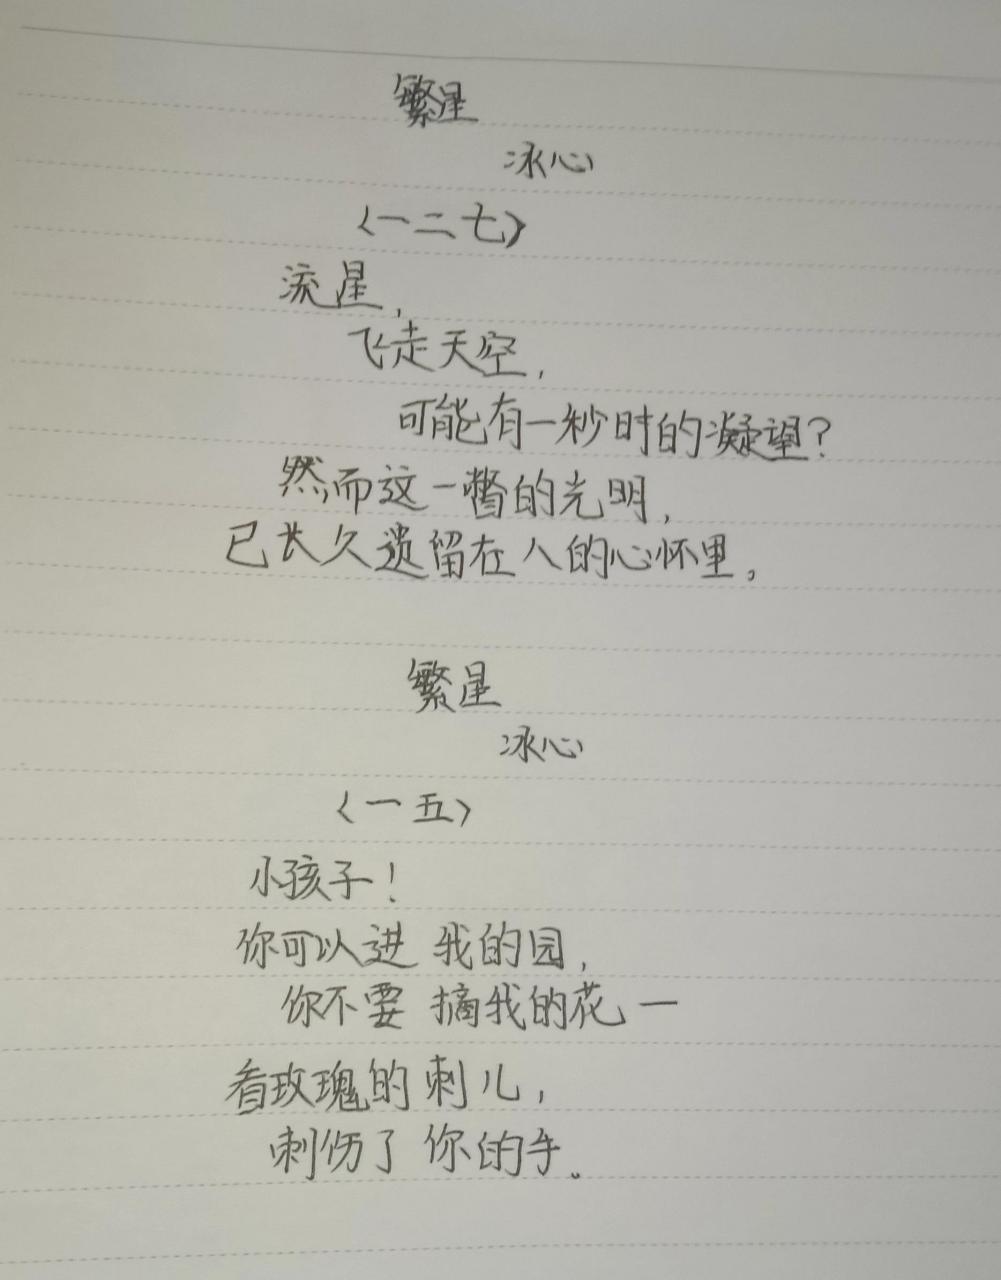 繁星
冰心
〈一二七〉
流星，
飞走天空，
可能有一秒时的凝望？
然而这一瞥的光明，
已长久遗留在人的心怀里。
繁星
冰心
〈一五〉
小孩子！
你可以进我的园，
你不要摘我的花一
看玫瑰的刺儿，
刺伤了你的手。